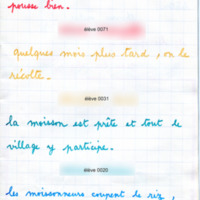 pousse bien.
élève 0071
quelques mois plus tard, on le
récolte.
élève 0031
la moisson est prête et tout de
village y participe.
élève 0020
les moissonneurs coupent de riz,